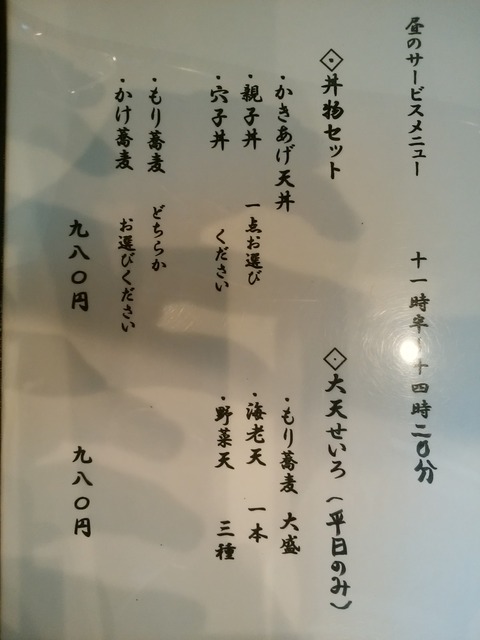 昼のサービスメニュー 十一時半~十四時二〇分
◇丼物セット
・かきあげ天丼
・親子丼 一点お選び
・穴子丼 ください
・もり蕎麦 どちらか
・かけ蕎麦 お選びください
九八〇円
◇大天せいろ(平日のみ)
・もり蕎麦 大盛
・海老天 一本
・野菜天 三種
九八〇円